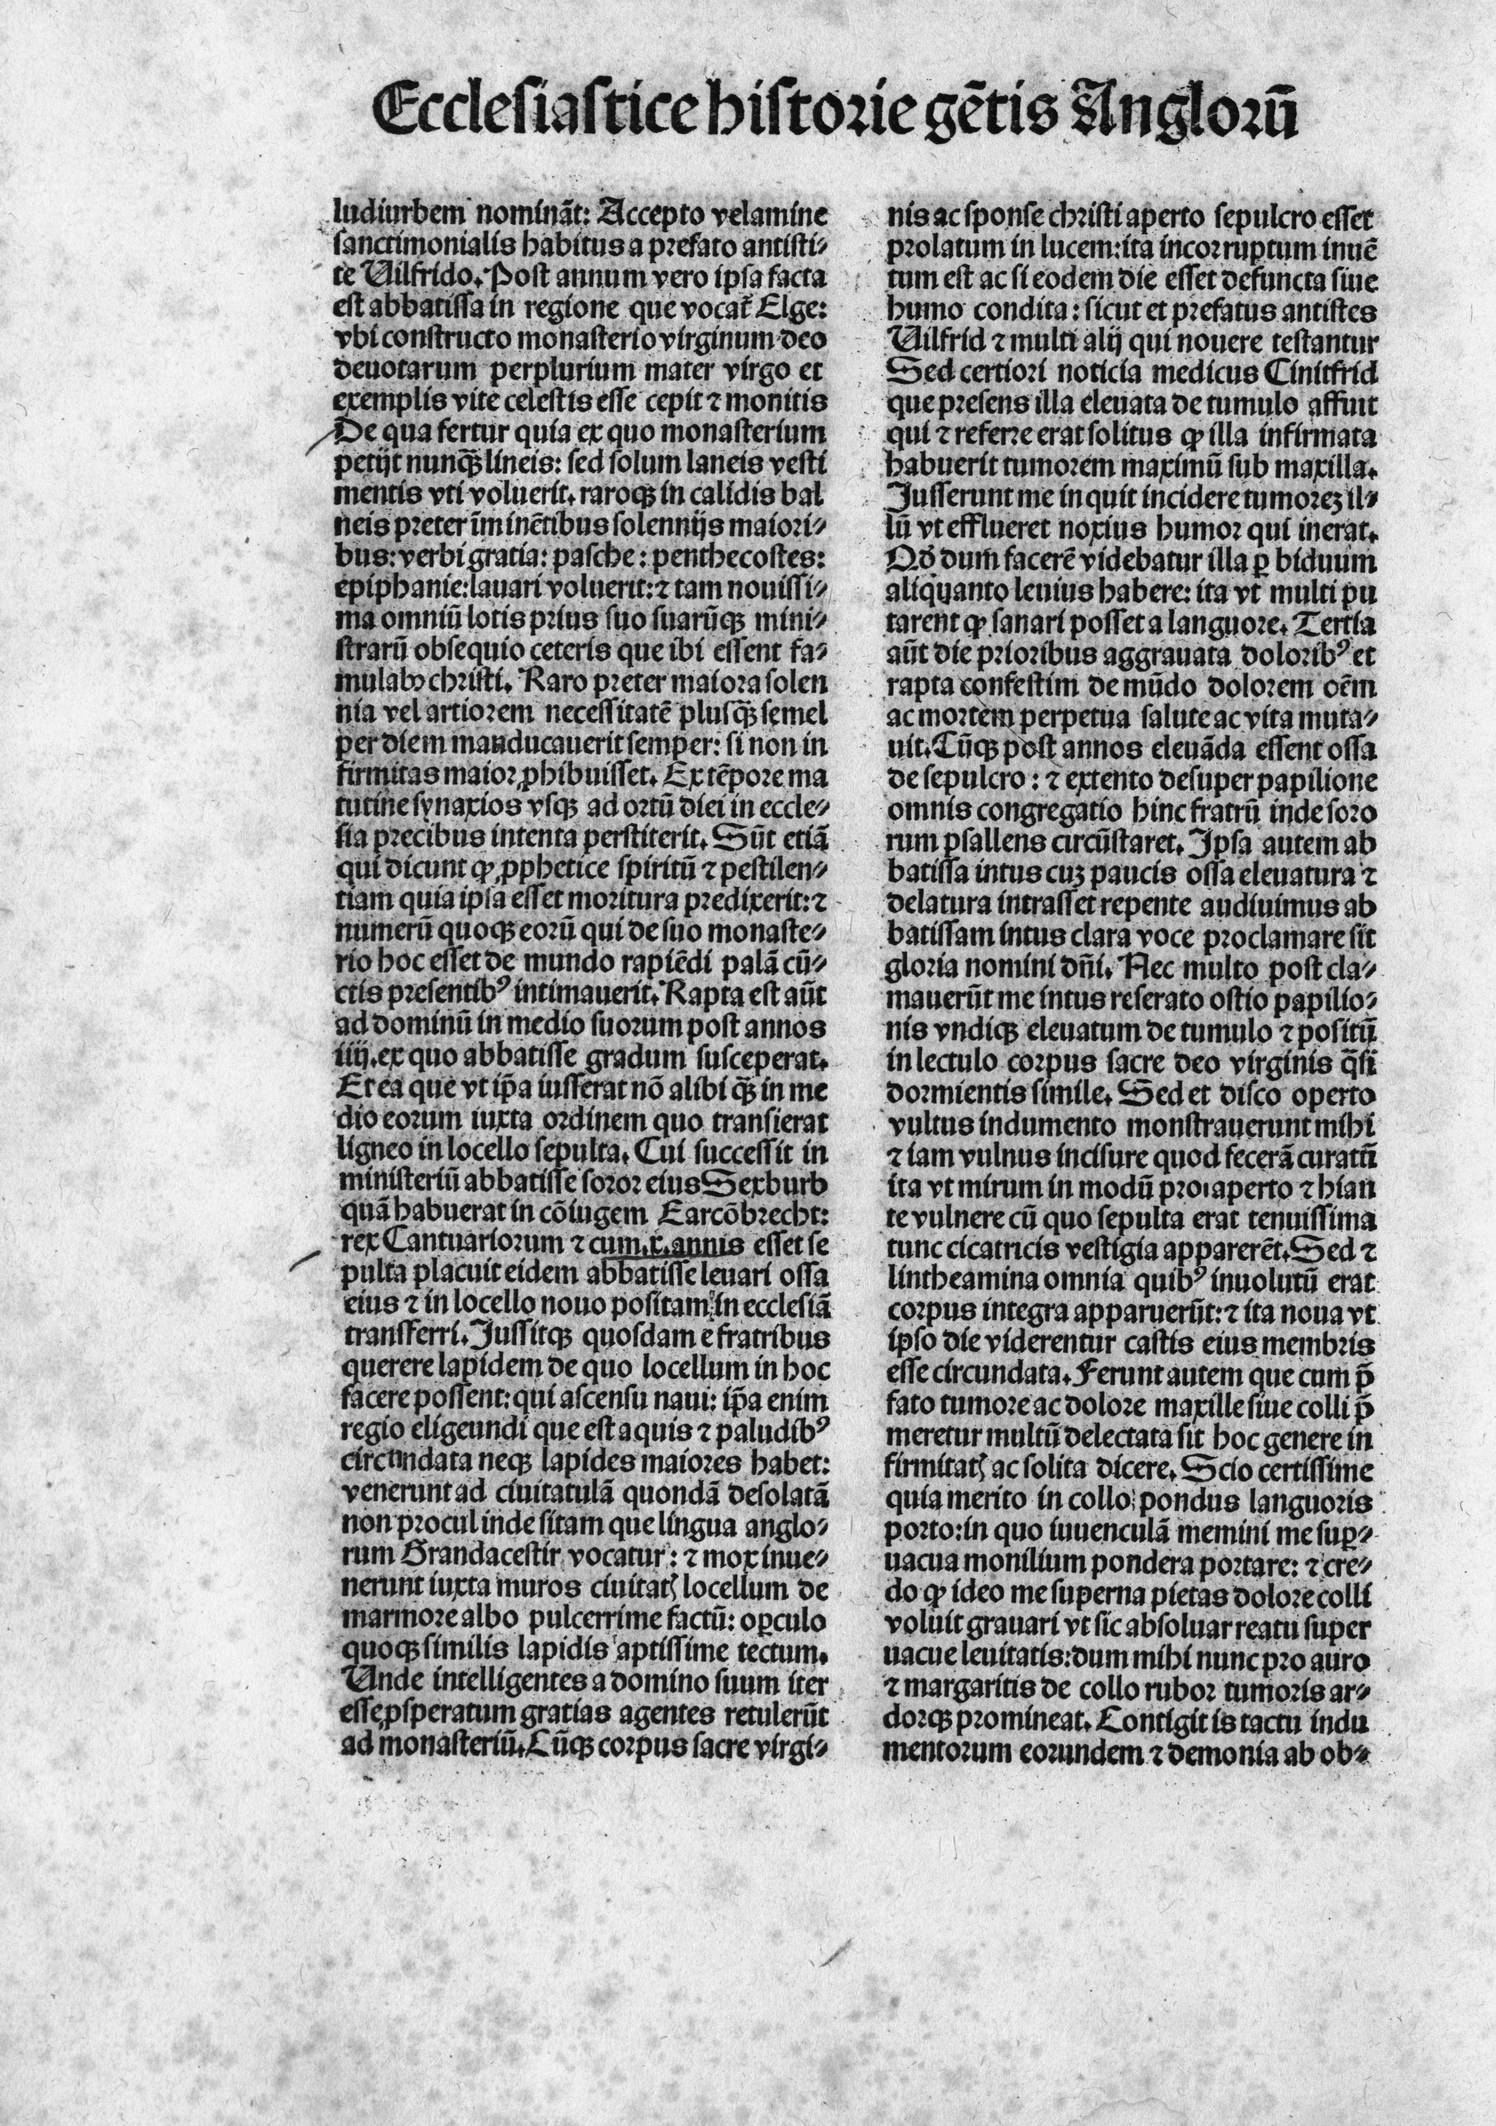 Ecclesiastice historie gẽtis Anglorũ
ludiurbem nominãt: Accepto velamine
sanctimonialis habitus a prefato antisti⸗
te Uilfrido. Post annum vero ipsa facta
est abbatissa in regione que vocat̃ Elge:
vbi constructo monasterio virginum deo
deuotarum perplurium mater virgo et
exemplis vite celestis esse cepit ⁊ monitis
De qua fertur quia ex quo monasterium
petijt nunqꝫ̃ lineis: sed solum laneis vesti
mentis vti voluerit. raroqꝫ in calidis bal
neis preter ĩminẽtibus solennijs maiori⸗
bus: verbi gratia: pasche: penthecostes:
epiphanie: lauari voluerit: ⁊ tam nouissi⸗
ma omniũ lotis prius suo suarũqꝫ mini⸗
strarũ obsequio ceteris que ibi essent fa⸗
mulabꝰ christi. Raro preter maiora solen
nia vel artiorem necessitatẽ plusqꝫ̃ semel
per diem manducauerit semper: si non in
firmitas maior ꝓhibuisset. Ex tẽpore ma
tutine synaxios vsqꝫ ad ortũ diei in eccle⸗
sia precibus intenta perstiterit. Sũt etiã
qui dicunt ꝙ ꝓphetice spiritũ ⁊ pestilen⸗
tiam quia ipsa esset moritura predixerit: ⁊
numerũ quoqꝫ eorũ qui de suo monaste⸗
rio hoc esset de mundo rapiẽdi palã cũ⸗
ctis presentibꝰ intimauerit. Rapta est aũt
ad dominũ in medio suorum post annos
iiij. ex quo abbatisse gradum susceperat.
Et ea que vt ip̃a iusserat nõ alibi qꝫ̃ in me
dio eorum iuxta ordinem quo transierat
ligneo in locello sepulta. Cui successit in
ministeriũ abbatisse soror eius Sexburb
quã habuerat in cõiugem Earcõbrecht:
rex Cantuariorum ⁊ cum. x. annis esset se
pulta placuit eidem abbatisse leuari ossa
eius ⁊ in locello nouo positam in ecclesiã
transferri. Jussitqꝫ quosdam e fratribus
querere lapidem de quo locellum in hoc
facere possent: qui ascensu naui: ip̃a enim
regio eligeundi que est aquis ⁊ paludibꝰ
circundata neqꝫ lapides maiores habet:
venerunt ad ciuitatulã quondã desolatã
non procul inde sitam que lingua anglo⸗
rum Grandacestir vocatur: ⁊ mox inue⸗
nerunt iuxta muros ciuitatꝭ locellum de
marmore albo pulcerrime factũ: oꝑculo
quoqꝫ similis lapidis aptissime tectum.
Unde intelligentes a domino suum iter
esse ꝓsperatum gratias agentes retulerũt
ad monasteriũ. Cũqꝫ corpus sacre virgi⸗
nis ac sponse christi aperto sepulcro esset
prolatum in lucem: ita incorruptum inuẽ
tum est ac si eodem die esset defuncta siue
humo condita: sicut et prefatus antistes
Uilfrid ⁊ multi alij qui nouere testantur
Sed certiori noticia medicus Cinitfrid
que presens illa eleuata de tumulo affuit
qui ⁊ referre erat solitus ꝙ illa infirmata
habuerit tumorem maximũ sub maxilla.
Jusserunt me in quit incidere tumoreꝫ il⸗
lũ vt efflueret noxius humor qui inerat.
Qð dum facerẽ videbatur illa ꝑ biduum
aliquanto leuius habere: ita vt multi pu
tarent ꝙ sanari posset a languore. Tertia
aũt die prioribus aggrauata doloribꝰ et
rapta confestim de mũdo dolorem oẽm
ac mortem perpetua salute ac vita muta⸗
uit. Cũqꝫ post annos eleuãda essent ossa
de sepulcro: ⁊ extento desuper papilione
omnis congregatio hinc fratrũ inde soro
rum psallens circũstaret. Ipsa autem ab
batissa intus cuꝫ paucis ossa eleuatura ⁊
delatura intrasset repente audiuimus ab
batissam intus clara voce proclamare sit
gloria nomini dñi. Nec multo post cla⸗
mauerũt me intus reserato ostio papilio⸗
nis vndiqꝫ eleuatum de tumulo ⁊ positũ
in lectulo corpus sacre deo virginis q̃si
dormientis simile. Sed et disco operto
vultus indumento monstrauerunt mihi
⁊ iam vulnus incisure quod fecerã curatũ
ita vt mirum in modũ pro aperto ⁊ hian
te vulnere cũ quo sepulta erat tenuissima
tunc cicatricis vestigia apparerẽt. Sed ⁊
lintheamina omnia quibꝰ inuolutũ erat
corpus integra apparuerũt: ⁊ ita noua vt
ipso die viderentur castis eius membris
esse circundata. Ferunt autem que cum p̃
fato tumore ac dolore maxille siue colli p̃
meretur multũ delectata sit hoc genere in
firmitatꝭ ac solita dicere. Scio certissime
quia merito in collo pondus languoris
porto: in quo iuuenculã memini me suꝑ⸗
uacua monilium pondera portare: ⁊ cre⸗
do ꝙ ideo me superna pietas dolore colli
voluit grauari vt sic absoluar reatu super
uacue leuitatis: dum mihi nunc pro auro
⁊ margaritis de collo rubor tumoris ar⸗
dorqꝫ promineat. Contigit is tactu indu
mentorum eorundem ⁊ demonia ab ob⸗